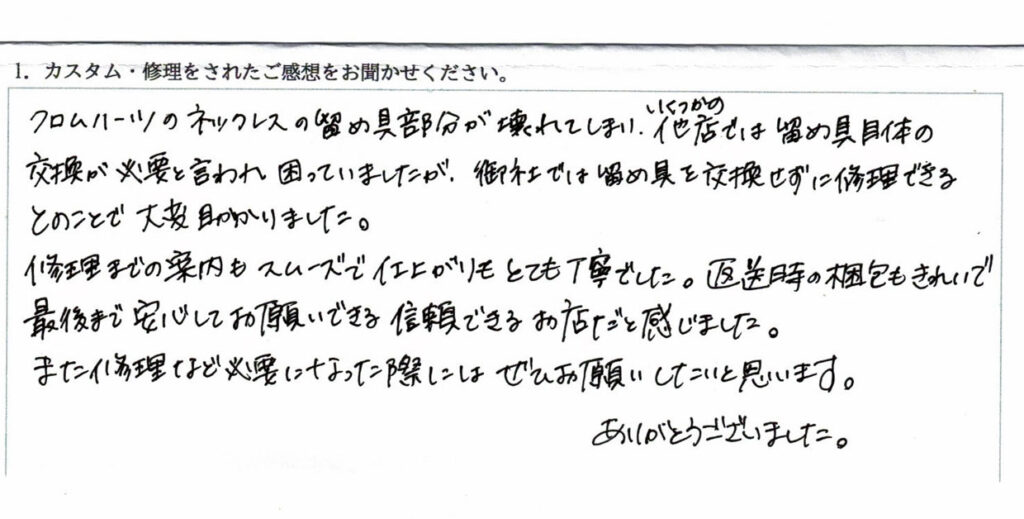 1. カスタム・修理をされたご感想をお聞かせください。
クロムハーツのネックレスの留め具部分が壊れてしまい、いくつかの他店では留め具自体の
交換が必要と言われ困っていましたが、御社では留め具を交換せずに修理できる
とのことで大変助かりました。
修理までの案内もスムーズで仕上がりもとても丁寧でした。返送時の梱包もきれいで
最後まで安心してお願いできる信頼できるお店だと感じました。
また修理など必要になった際にはぜひお願いしたいと思います。
ありがとうございました。